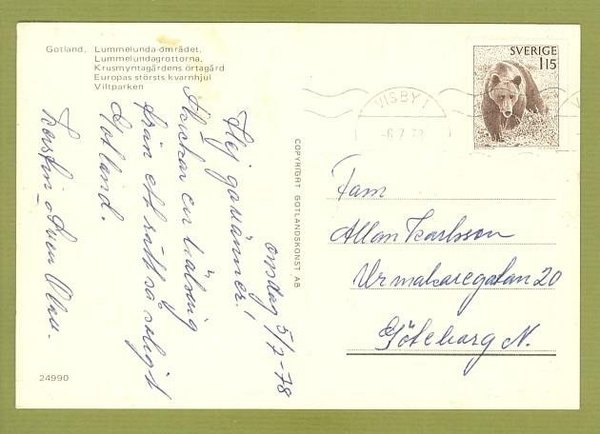 Gotland. Lummelunda området.
Lummelundagrottorna.
Krusmyntagårdens örtagård
Europas största kvarnhjul
Viltparken
SVERIGE
115
VISBY 1
-6.7.78
onsdag 5/7-78
Hej godvänner!
Skickar en hälsning
från ett rätt så soligt
Gotland.
Kerstin o Sven Olov.
COPYRIGHT GOTLANDSKONST AB
Fam
Allan Karlsson
Urmakaregatan 20
Göteborg N.
24990